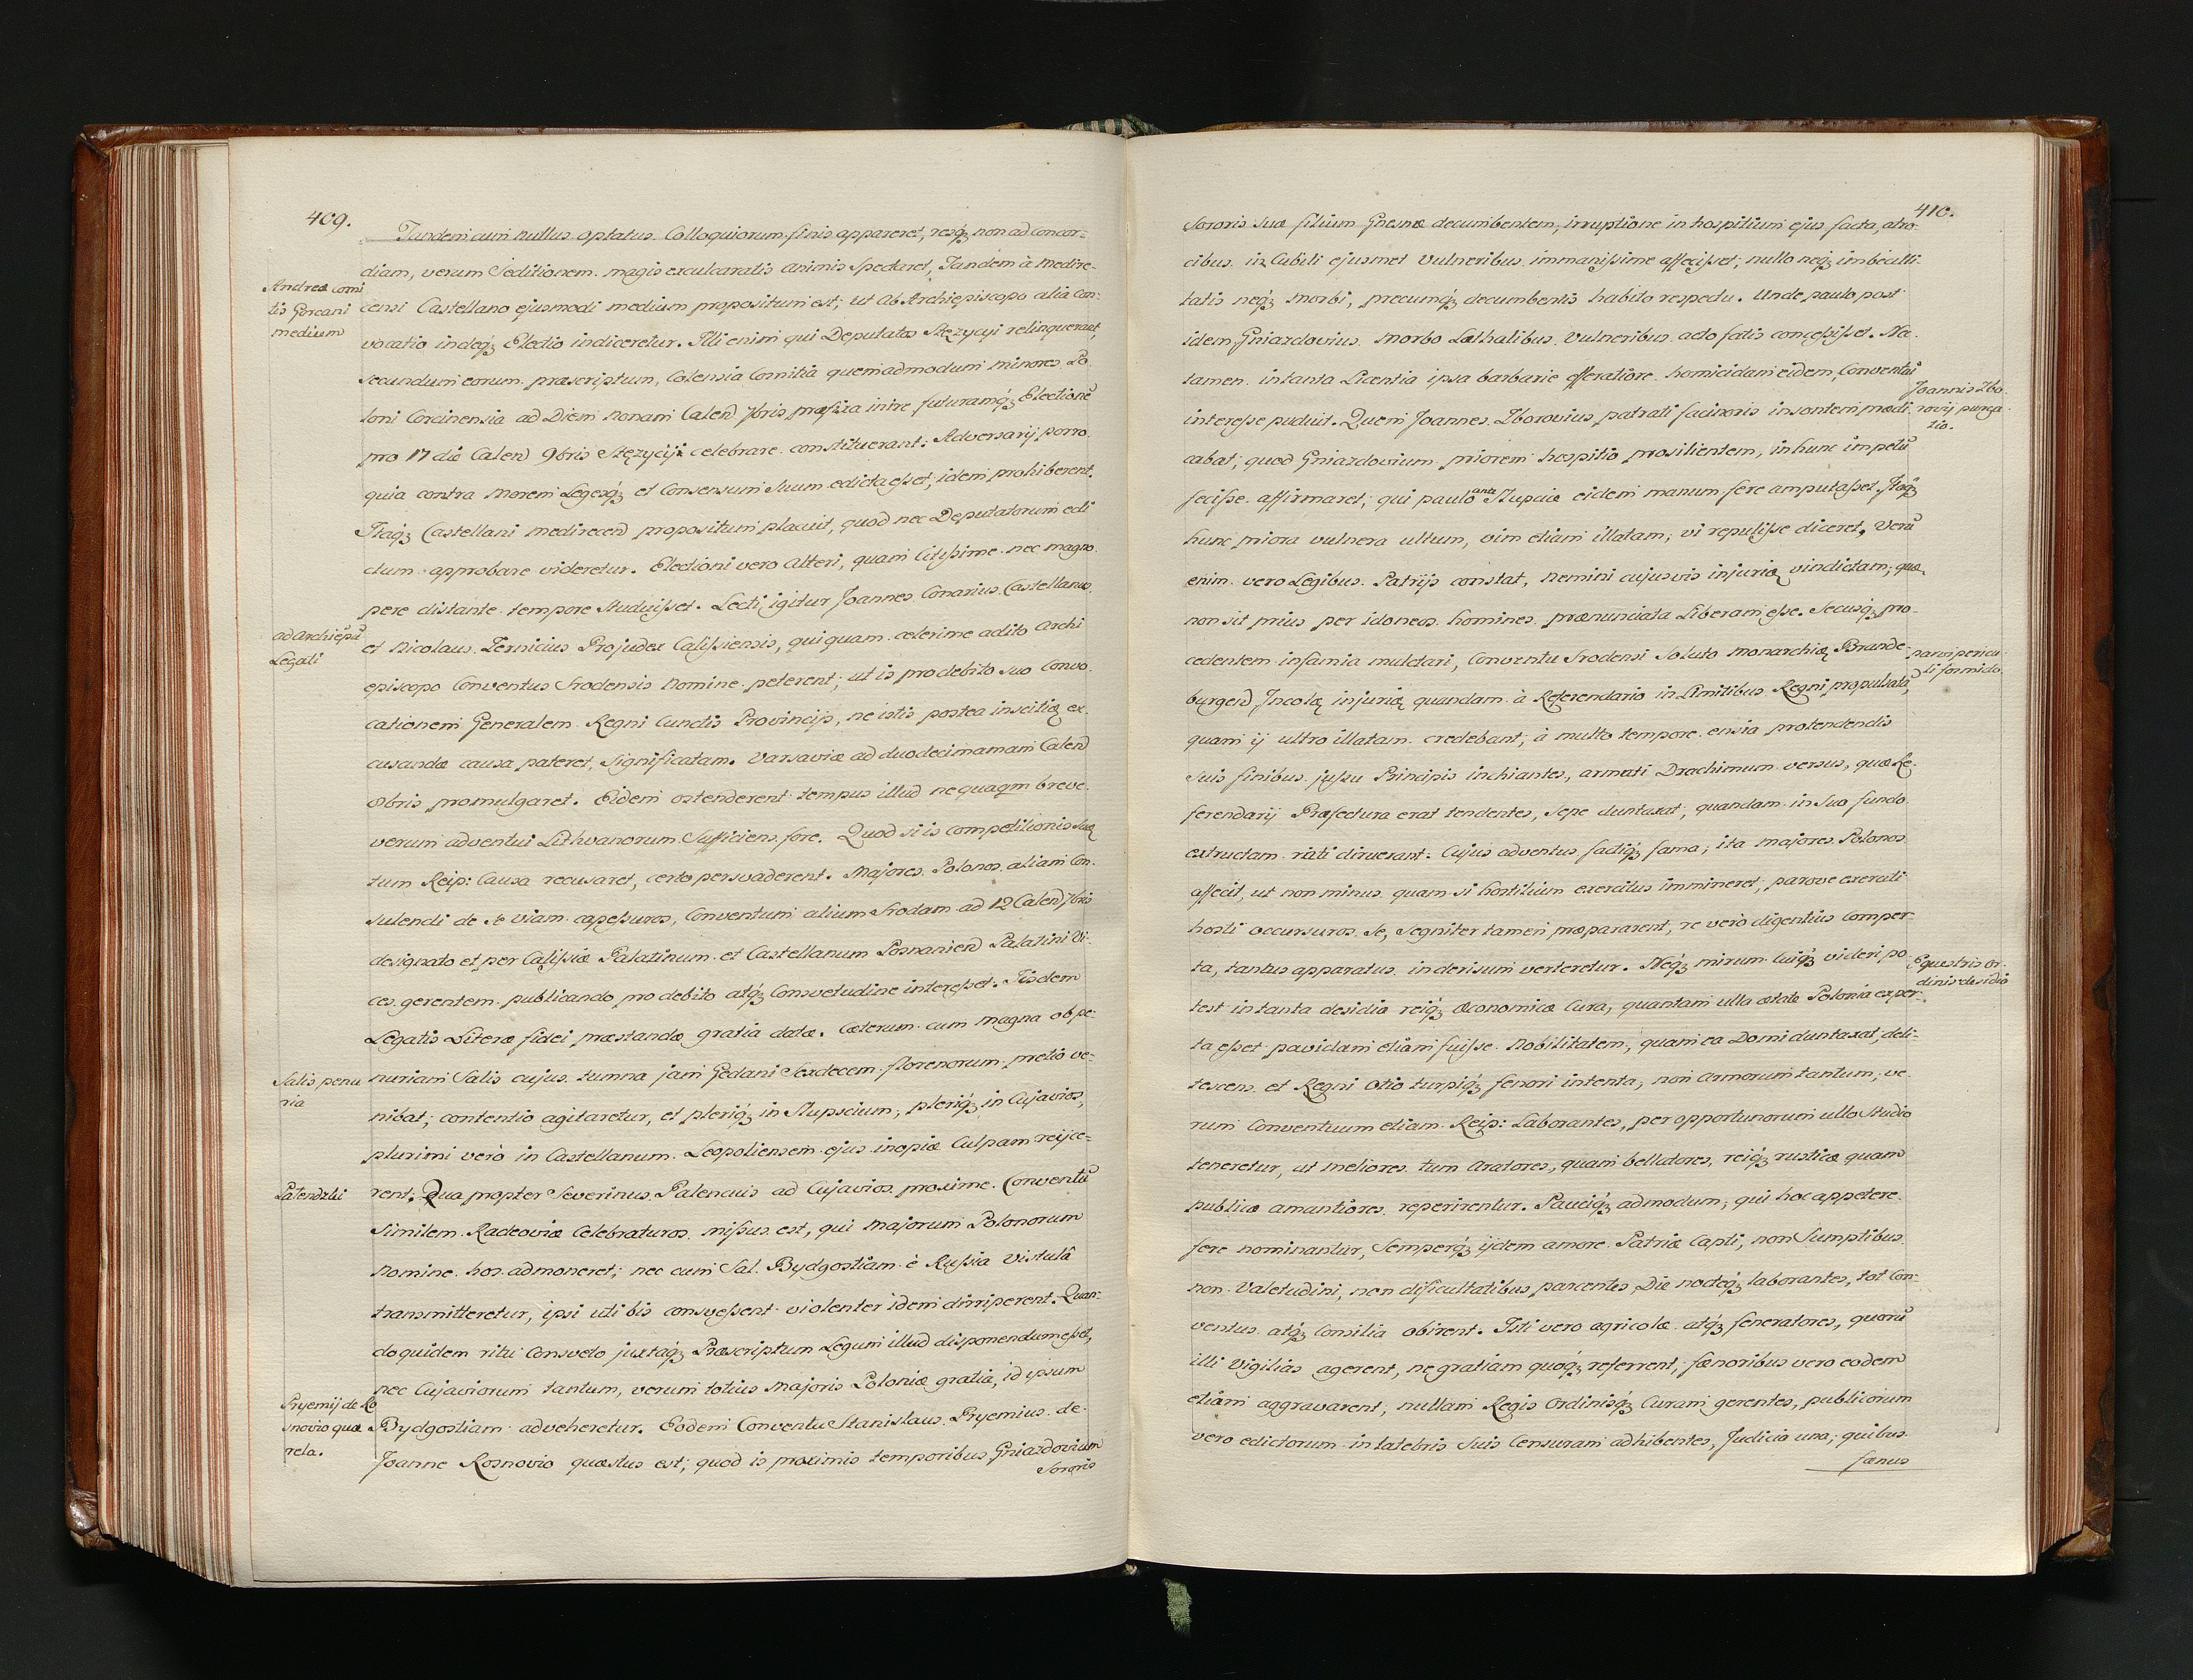 409.
Tandem cum nullus optatus Colloquiorum finis appareret, resq́ʒ non ad concor-
diam, verum Seditionem magis exulcaratis animis Spectaret, Tandem à Medire-
Andreæ comi
tis Gorcani
medium
censi Castellano ejusmodi medium propositum est; ut Ab Archiepiscopo alia con-
vocatio indeq́ʒ Electio indiceretur. Illi enim qui Deputatos Stęzycyi relinquerant,
secundum eorum præscriptum, Colensia Comitia quemadmodum minores Po
loni Corcinensia ad Diem nonam Calen̄ 7bris præfixa inire futuramq́ʒ Electionē
pro 17 die Calen̄ 9bris Stęzycijs celebrare constituerant: Adversarij porro
quia contra Morem Legesq́ʒ et Consensum Suum edicta eſset, idem prohiberent.
Itaq́ʒ Castellani medirecen̄ propositum placuit, quod nec Deputatorum edi
ctum approbare videretur. Electioni vero Alteri, quam Citiſsime nec magno
pere distante tempore Studuiſset. Lecti igitur Joannes Conarius Castellanus
ad Archiepū
Legati
et Nicolaus Ternicius Projudex Caliſsiensis, qui quam celerime adito Archi
episcopo Conventus Srodensis Nomine peterent; ut is pro debito suo Convo
cationem Generalem Regni Cunctis Provincijs, ne istis postea inscitię ex
cusandæ causa pateret, Significatam. Varsaviæ ad duodecimamam Calen̄
8bris promulgaret. Eidem ostenderent tempus illud ne quaqm breve
verum adventui Lithvanorum Sufficiens fore. Quod si is competitionis suę
tum Reip: Causa recusaret, certo persvaderent. Majores Polonos aliam Con-
sulendi de se viam capeſsuros, Conventum alium Srodam ad 12 Calen̄ 7bris
designato et per Caliſsiæ Palatinum et Castellanum Posnanien̄ Palatini Vi-
ces gerentem publicando pro debito atq́ʒ Consvetudine intereſset. Iisdem
Legatis Literæ fidei præstandæ gratia datæ. Cæterum cum magna ob pe-
Salis penu
ria
nuriam Salis cujus tumna jam Gedani Sexdecem florenorum pretio ve-
nibat; contentio agitaretur, et pleriq́ʒ in Slupscium, pleriq́ʒ in Cujavios,
plurimi verò in Castellanum Leopoliensem ejus inopiæ Culpam reijce-
Patendzki
rent. Qua propter Severinus Palencuis ad Cujavios proxime Conventū
Similem Radeoviæ Celebraturos miſsus est, qui Majorum Polonorum
Nomine hos admoneret; nec cum Sal Bydgostiam è Ruſsia Vistulâ
transmitteretur, ipsi uti bis consveſsent violenter idem dirriperent. Quan-
do quidem ritu Consveto juxtaq́ʒ Præscriptum Legum illud disponendum eſset,
nec Cujaviorum tantum, verum totius Majoris Poloniæ gratia, id ipsum
Pryemij de Ro
snovio quæ
rela.
Bydgostiam adveheretur. Eodem Conventu Stanislaus Pryemius de
Joanne Rosnovio quæstus est; quod is proximis temporibus Gniazdovium
Sororis
410.
Sororis Suæ filium Gnesnæ decumbentem, irruptione in hospitium ejus facta, atro-
cibus in Cubili ejusmet Vulneribus immaniſsime affeciſset; nullo neq́ʒ imbecilli-
tatis neq́ʒ Morbi, precumq́ʒ decumbentis habito respectu. Unde paulo post
idem Gniazdovius Morbo Læthalibus Vulneribus acto fatis conceſsiſset. Ne
tamen in tanta Licentia ipsa barbarie efferatiore homicidam eidem, Conventui
Joannis Zbo
rovij purga
tio.
intereſse puduit. Quem Joannes Zborovius patrati facinoris insontem prædi
cabat; quod Gniazdovium priorem hospitio prosilientem, in hunc impetū
feciſse affirmaret; qui paulo ante Stupciæ eidem manum fere amputaſset. Itaq́ʒ
hunc priora vulnera ultum, vim etiam illatam, vi repuliſse diceret. Verū
enim vero Legibus Patrijs constat, Nemini cujusvis injurię vindictam, quæ
non sit prius per idoneos homines prænunciata Liberam eſse. Secusq́ʒ pro-
cedentem infamia mulctari, Conventu Srodensi Soluto Monarchię Brande
parvi pericu
li formido.
burgen̄ Incolę injurię quandam à Referendario in Limitibus Regni propulsatā,
quam ij ultro illatam credebant; à multo tempore ensia protendendis
Suis finibus juſsu Principis inchiantes, armati Drachimum versus, quæ Re-
ferendarij Præfectura erat tendentes, Sepe duntaxat, quandam in Suo fundo
extructam rati diruerant. Cujus adventus factiq́ʒ fama, ita Majores Polonos
affecit, ut non minus quam si hostilium exercitus immineret; parove exerciti
hosti occursuros Se, Segniter tamen præpararent, re verò digentius comper-
ta, tantus apparatus in derisum verteretur. Neq́ʒ mirum cuiq́ʒ videri po-
Equestris or
dinis desidia
test in tanta desidia reiq́ʒ Œconomicæ Cura, quantam ulla ætate Polonia exper-
ta eſset pavidam etiam fuiſse Nobilitatem, quam ea Domi duntaxat, deli-
tescens et Regni Otio turpiq́ʒ fenori intenta, non Armorum tantum, ve
rum Conventuum etiam Reip: Laborantes, per opportunorum ullo Studio
teneretur, ut meliores tum Aratores, quam bellatores, reiq́ʒ rusticæ quam
publicæ amantiores reperirentur. Pauciq́ʒ admodum, qui hoc appetere
fere nominantur, Semperq́ʒ ijdem amore Patriæ Capti, non Sumptibus
non Valetudini, non dificultatibus parcentes, Die nocteq́ʒ laborantes, tot Con-
ventus atq́ʒ Consilia obirent. Isti vero agricolæ atq́ʒ feneratores, quorū
illi Vigilias agerent, ne gratiam quoq́ʒ referrent, fænoribus vero eodem
etiam aggravarent, nullam Regis Ordinisq́ʒ Curam gerentes, publicorum
vero edictorum in latebris Suis Censuram adhibentes, Judicia una, quibus
fænus